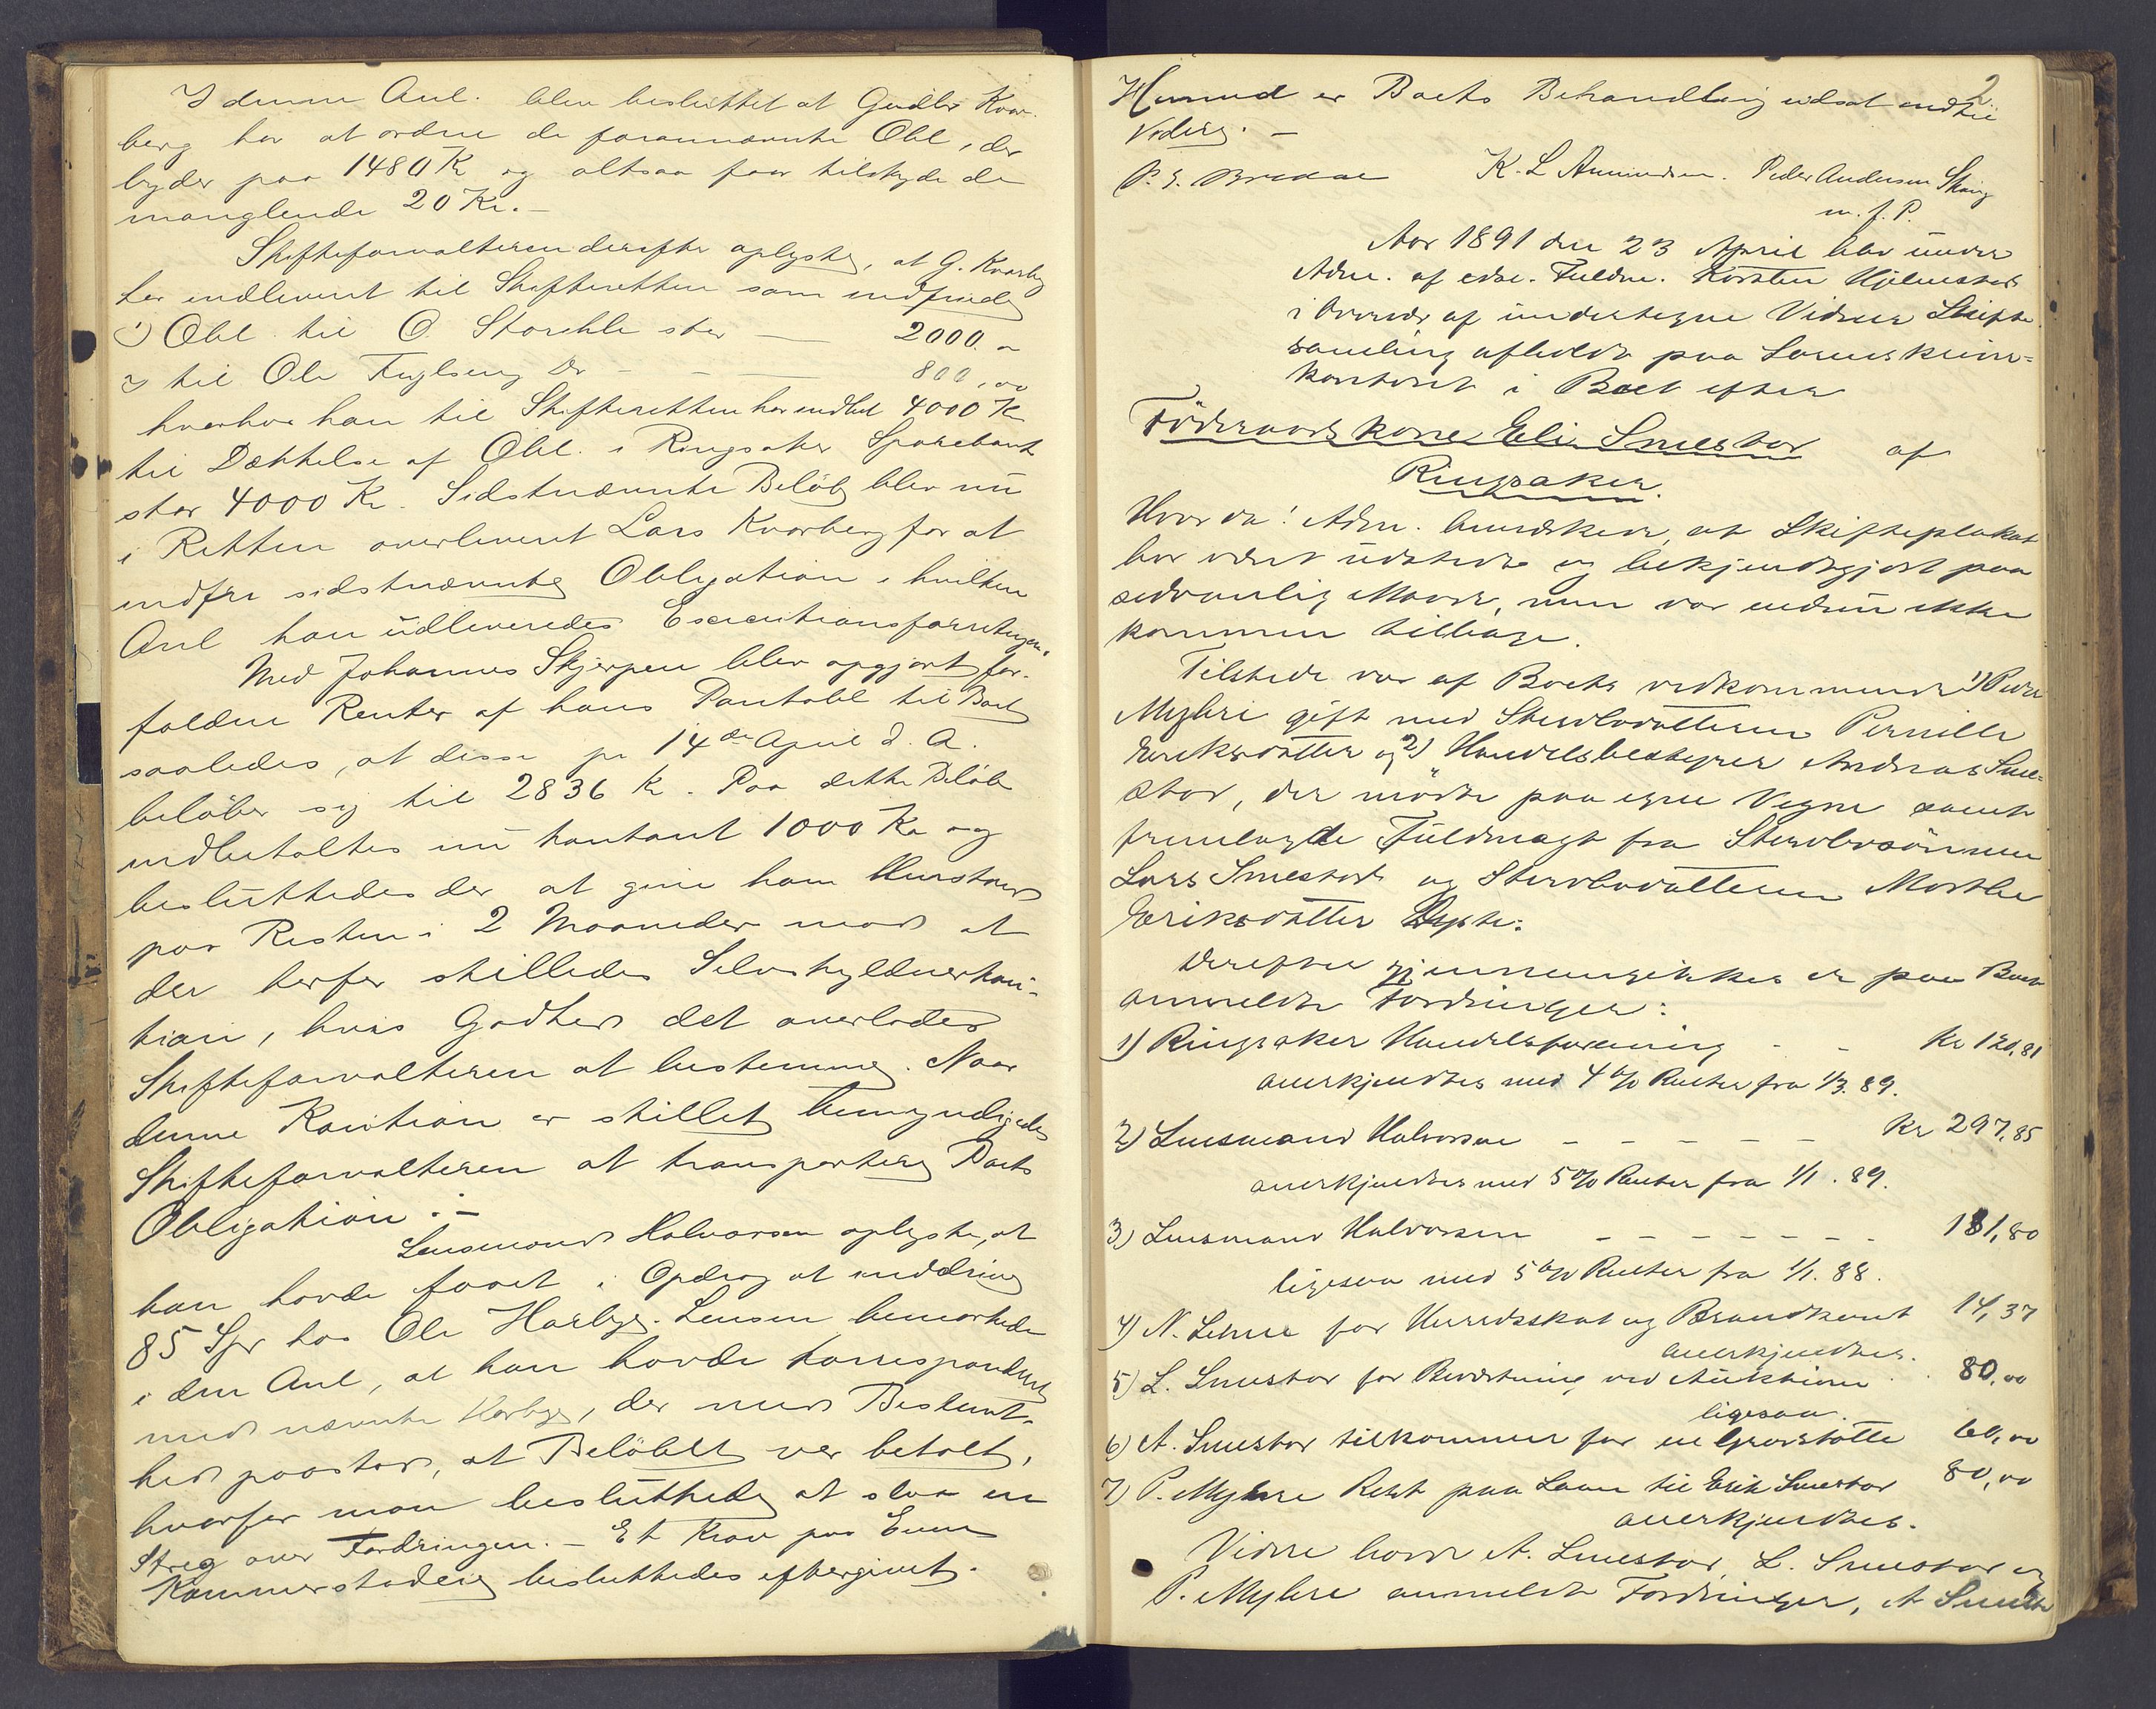 I denne Anl. blev besluttet at Gudbr Kvar-
berg har at ordne de forannævnte Obl, der
lyder paa 1480 Kr og altsaa faar tilskyde de
manglende 20 Kr. –
Skifteforvalteren derefter oplyste, at G. Kvarberg
har indleveret til Skifteretten som indfriede
1) Obl. til O. Storehle stor — 2000. "
2 til Ole Fuglseng Do – – — 800,00
hvorhos han til Skifteretten har indbet 4000 Kr
til Dækkelse af Obl. i Ringsaker Sparebank
stor 4000 Kr. Sidstnævnte Beløb blev nu
i Retten overleveret Lars Kvarberg for at
indfri sidstnævnte Obligation i hvilken
Anl han udleveredes Executionsforretngen.
Med Johannes Skjerpen blev opgjort for-
faldne Renter af hans Pantobl til Boet
saaledes, at disse pr 14de April d. A.
beløber sig til 2836 Kr. Paa dette Beløb
indbetaltes nu kontant 1000 Kr og
besluttedes der at give ham Henstand
paa Resten i 2 Maaneder mod at
der herfor stilledes Selvskyldnerkau-
tion, hvis Godhed det overlodes
Skifteforvalteren at bestemme. Naar
denne Kaution er stillet bemyndigedes
Skifteforvalteren at transportere Boets
Obligation. –
Lensmand Halvorsen oplyste, at
han havde faaet i Opdrag at inddrive
85 Spd hos Ole Harbye. Lensm bemærkede
i den Anl, at han havde korresponderet
med nævnte Harbye, der med Bestemt-
hed paastod, at Beløbet var betalt,
hvorfor man besluttede at slaa en
Streg over Fordringen. – Et Krav paa Even
Kammerstadeie besluttedes eftergivet.
2.
Hermed er Boets Behandling udsat indtil
Videre. –
P. E. Bredal K. L Amundsen. Peder Andersen Skaug
m. f. P.
Aar 1891 den 23 April blev under
Adm. af edsv. Fuldm. Karsten Hjelmstad
i Overvær af undertegne Vidner Skifte
samling afholdt paa Sorenskriver-
kontoret i Boet efter
Föderaadskone Eli Smestad af
Ringsaker.
Hvorda! Adm. bemærkede, at Skifteplakat
har været udstedt og bekjendtgjort paa
sedvanlig Maade, men var endnu ikke
kommen tilbage.
Tilstede var af Boets vedkommende 1) Peder
Myhre gift med Stervbodatteren Pernille
Eriksdatter og 2) Handelsbestyrer Andreas Sme-
stad, der mødte paa egne Vegne samt
fremlagde Fuldmagt fra Stervbosönnen
Lars Smestad og Stervbodatteren Marthe
Eriksdatter Dypte.
Derefter gjennemgikkes de paa Boet
anmeldte Fordringer:
1) Ringsaker Handelsforening – – Kr 120,81
anerkjendtes med 4 % Renter fra 1/3. 89.
2) Lensmand Halvorsen – – – – – Kr 297,85
anerkjendtes med 5 % Renter fra 1/1. 89.
3) Lensmand Halvorsen – – – – – – – 181,80
ligesaa med 5 % Renter fra 1/1. 88.
4) N. Lehne for Herredsskat og Brandkont 14,37
anerkjendtes.
5) L. Smestad for Bevertning ved Auktionen . 80,00
ligesaa.
6) A. Smestad tilkommer for en Gravstøtte 60,00
7) P. Myhre Rest paa Laan til Erik Smestad 80,00
anerkjendtes.
Videre havde A. Smestad, L. Smestad og
P. Myhre anmeldt Fordringer, A Smestad